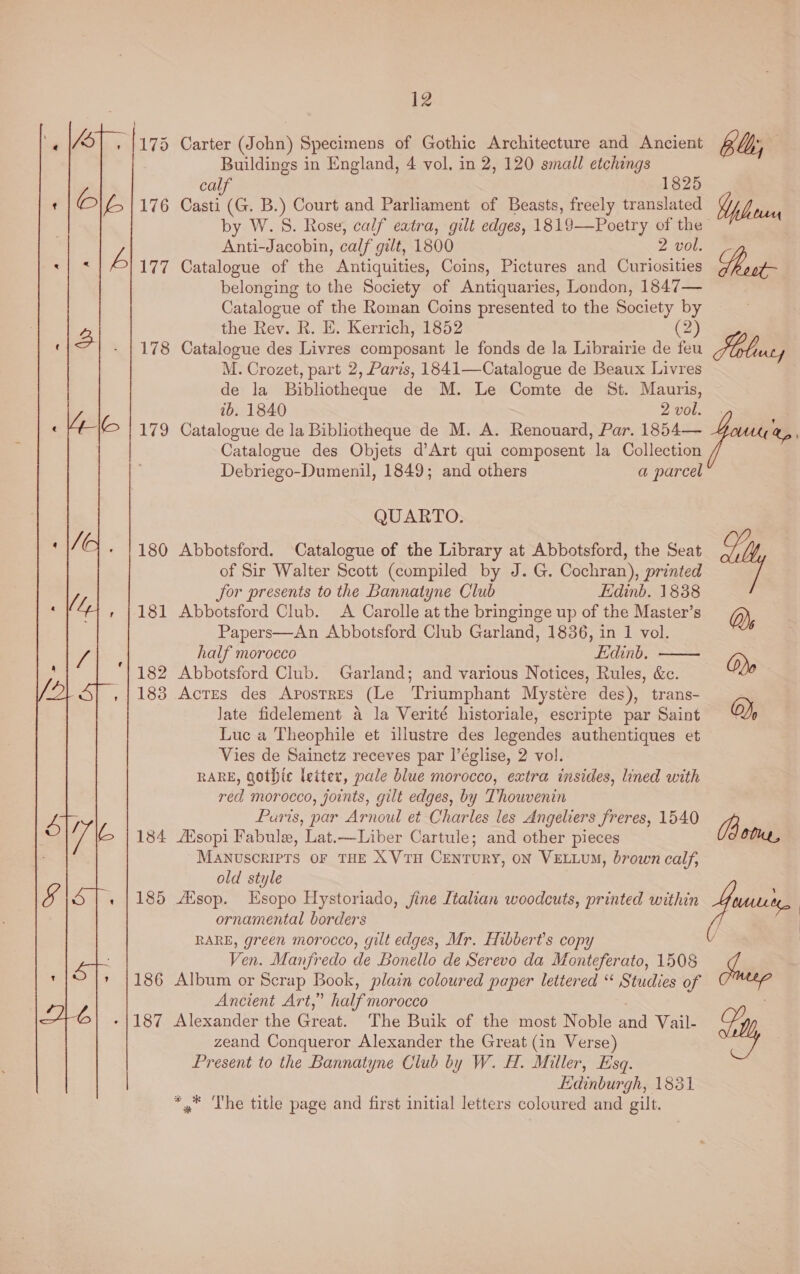 12
175 Carter (John) Specimens of Gothic Architecture and Ancient
Buildings in England, 4 vol. in 2, 120 small etchings
calf 1825
176 Casti (G. B.) Court and Parliament of Beasts, freely translated
by W. S. Rose, calf extra, gilt edges, 1819—Poetry of the
Anti-Jacobin, calf gilt, 1800 2 vol.
177 Catalogue of the Antiquities, Coins, Pictures and Curiosities
belonging to the Society of Antiquaries, London, 1847—
Catalogue of the Roman Coins presented to the Society by
the Rev. R. E. Kerrich, 1852 (2)
178 Catalogue des Livres composant le fonds de la Librairie de feu
M. Crozet, part 2, Paris, 1841—Catalogue de Beaux Livres
de la Bibliotheque de M. Le Comte de St. Mauris,
ib. 1840 2 vol.
179 Catalogue de la Bibliotheque de M. A. Renouard, Par. 1854—
Catalogue des Objets d'Art qui composent la Collection
Debriego-Dumenil, 1849; and others a parcel
QUARTO.
180 Abbotsford. Catalogue of the Library at Abbotsford, the Seat Lilly
of Sir Walter Scott (compiled by J. G. Cochran), printed
for presents to the Bannatyne Club Edinb. 1838
181 Abbotsford Club. A Carolle at the bringinge up of the Master's Do
Papers—An Abbotsford Club Garland, 1836, in 1 vol.
half morocco Edinb. ——
182 Abbotsford Club. Garland; and various Notices, Rules, &c. Do
183 Actes des Apostres (Le Triumphant Mystère des), trans-
late fidelement à la Verité historiale, escripte par Saint Do
Luc a Theophile et illustre des legendes authentiques et
Vies de Sainctz receves par l'église, 2 vol.
RARE, gothic letter, pale blue morocco, extra insides, lined with
red morocco, joints, gilt edges, by Thouvenin
Paris, par Arnoul et Charles les Angeliers freres, 1540
184 Æsopi Fabulæ, Lat.—Liber Cartule; and other pieces Boone
MANUSCRIPTS OF THE XVTH CENTURY, ON VELLUM, brown calf,
old style
185 Æsop. Esopo Hystoriado, fine Italian woodcuts, printed within
ornamental borders
RARE, green morocco, gilt edges, Mr. Hibbert's copy
Ven. Manfredo de Bonello de Serevo da Monteferato, 1508
186 Album or Scrap Book, plain coloured paper lettered “Studies of
Ancient Art,” half morocco
187 Alexander the Great. The Buik of the most Noble and Vail- Lilly
zeand Conqueror Alexander the Great (in Verse)
Present to the Bannatyne Club by W. H. Miller, Esq.
Edinburgh, 1831
*** The title page and first initial letters coloured and gilt.